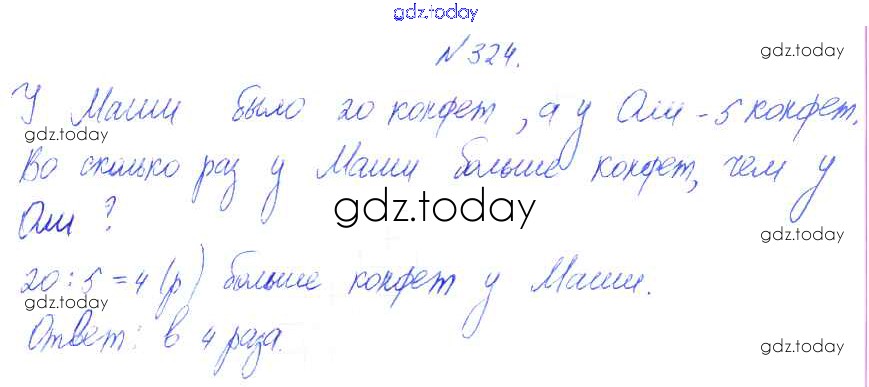 gdz.today
№324.
gdz.today
У Маши было 20 конфет, а у Оли - 5 конфет.
gdz.today
Во сколько раз у Маши больше конфет, чем у
Оли?
gdz.today
gdz.today
20:5=4(р) больше конфет у Маши.
gdz.today
Ответ: в 4 раза.
gdz.today